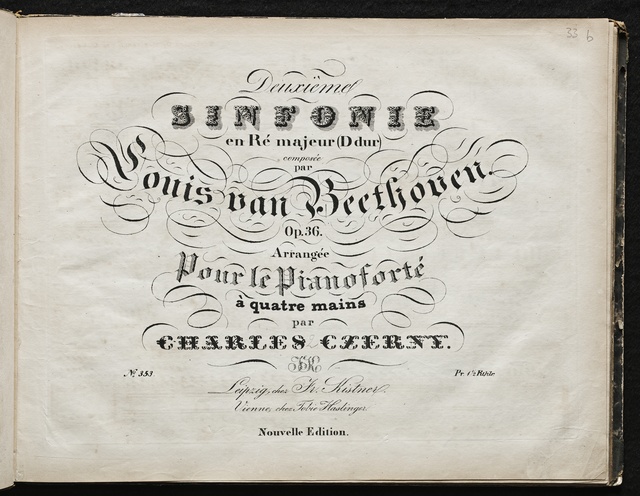 33 b
Deuxième
SINFONIE
en Ré majeur (D dur)
composée
par
Louis van Beethoven.
Op. 36.
Arrangée
Pour le Pianoforté
à quatre mains
par
CHARLES CZERNY.
FK
Leipzig, chez Fr. Kistner.
Vienne, chez Tobie Haslinger.
Nº 353
Nouvelle Edition.